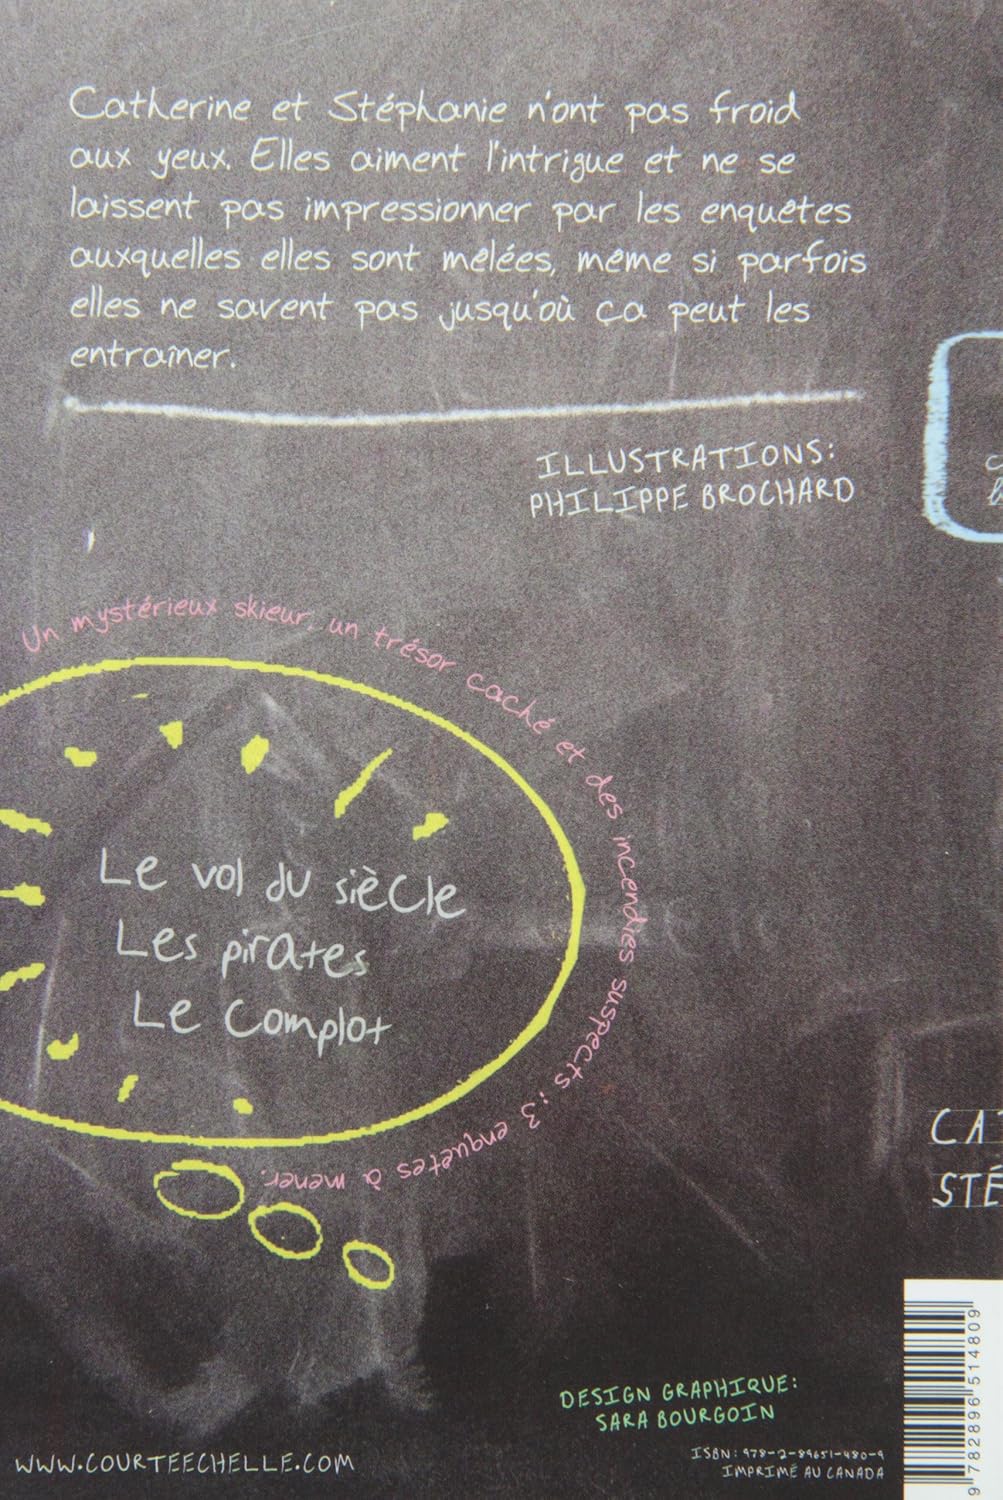 Catherine et Stéphanie n'ont pas froid
aux yeux. Elles aiment l'intrigue et ne se
laissent pas impressionner par les enquêtes
auxquelles elles sont mêlées, même si parfois
elles ne savent pas jusqu'où ça peut les
entraîner.
ILLUSTRATIONS:
PHILIPPE BROCHARD
Un mystérieux skieur, un trésor caché et des incendies suspects : 3 enquêtes à mener.
Le vol du siècle
Les pirates
Le complot
CA
STÉ
DESIGN GRAPHIQUE:
SARA BOURGOIN
WWW.COURTEECHELLE.COM
ISBN: 978-2-89651-480-9
IMPRIMÉ AU CANADA
9 782896 514809